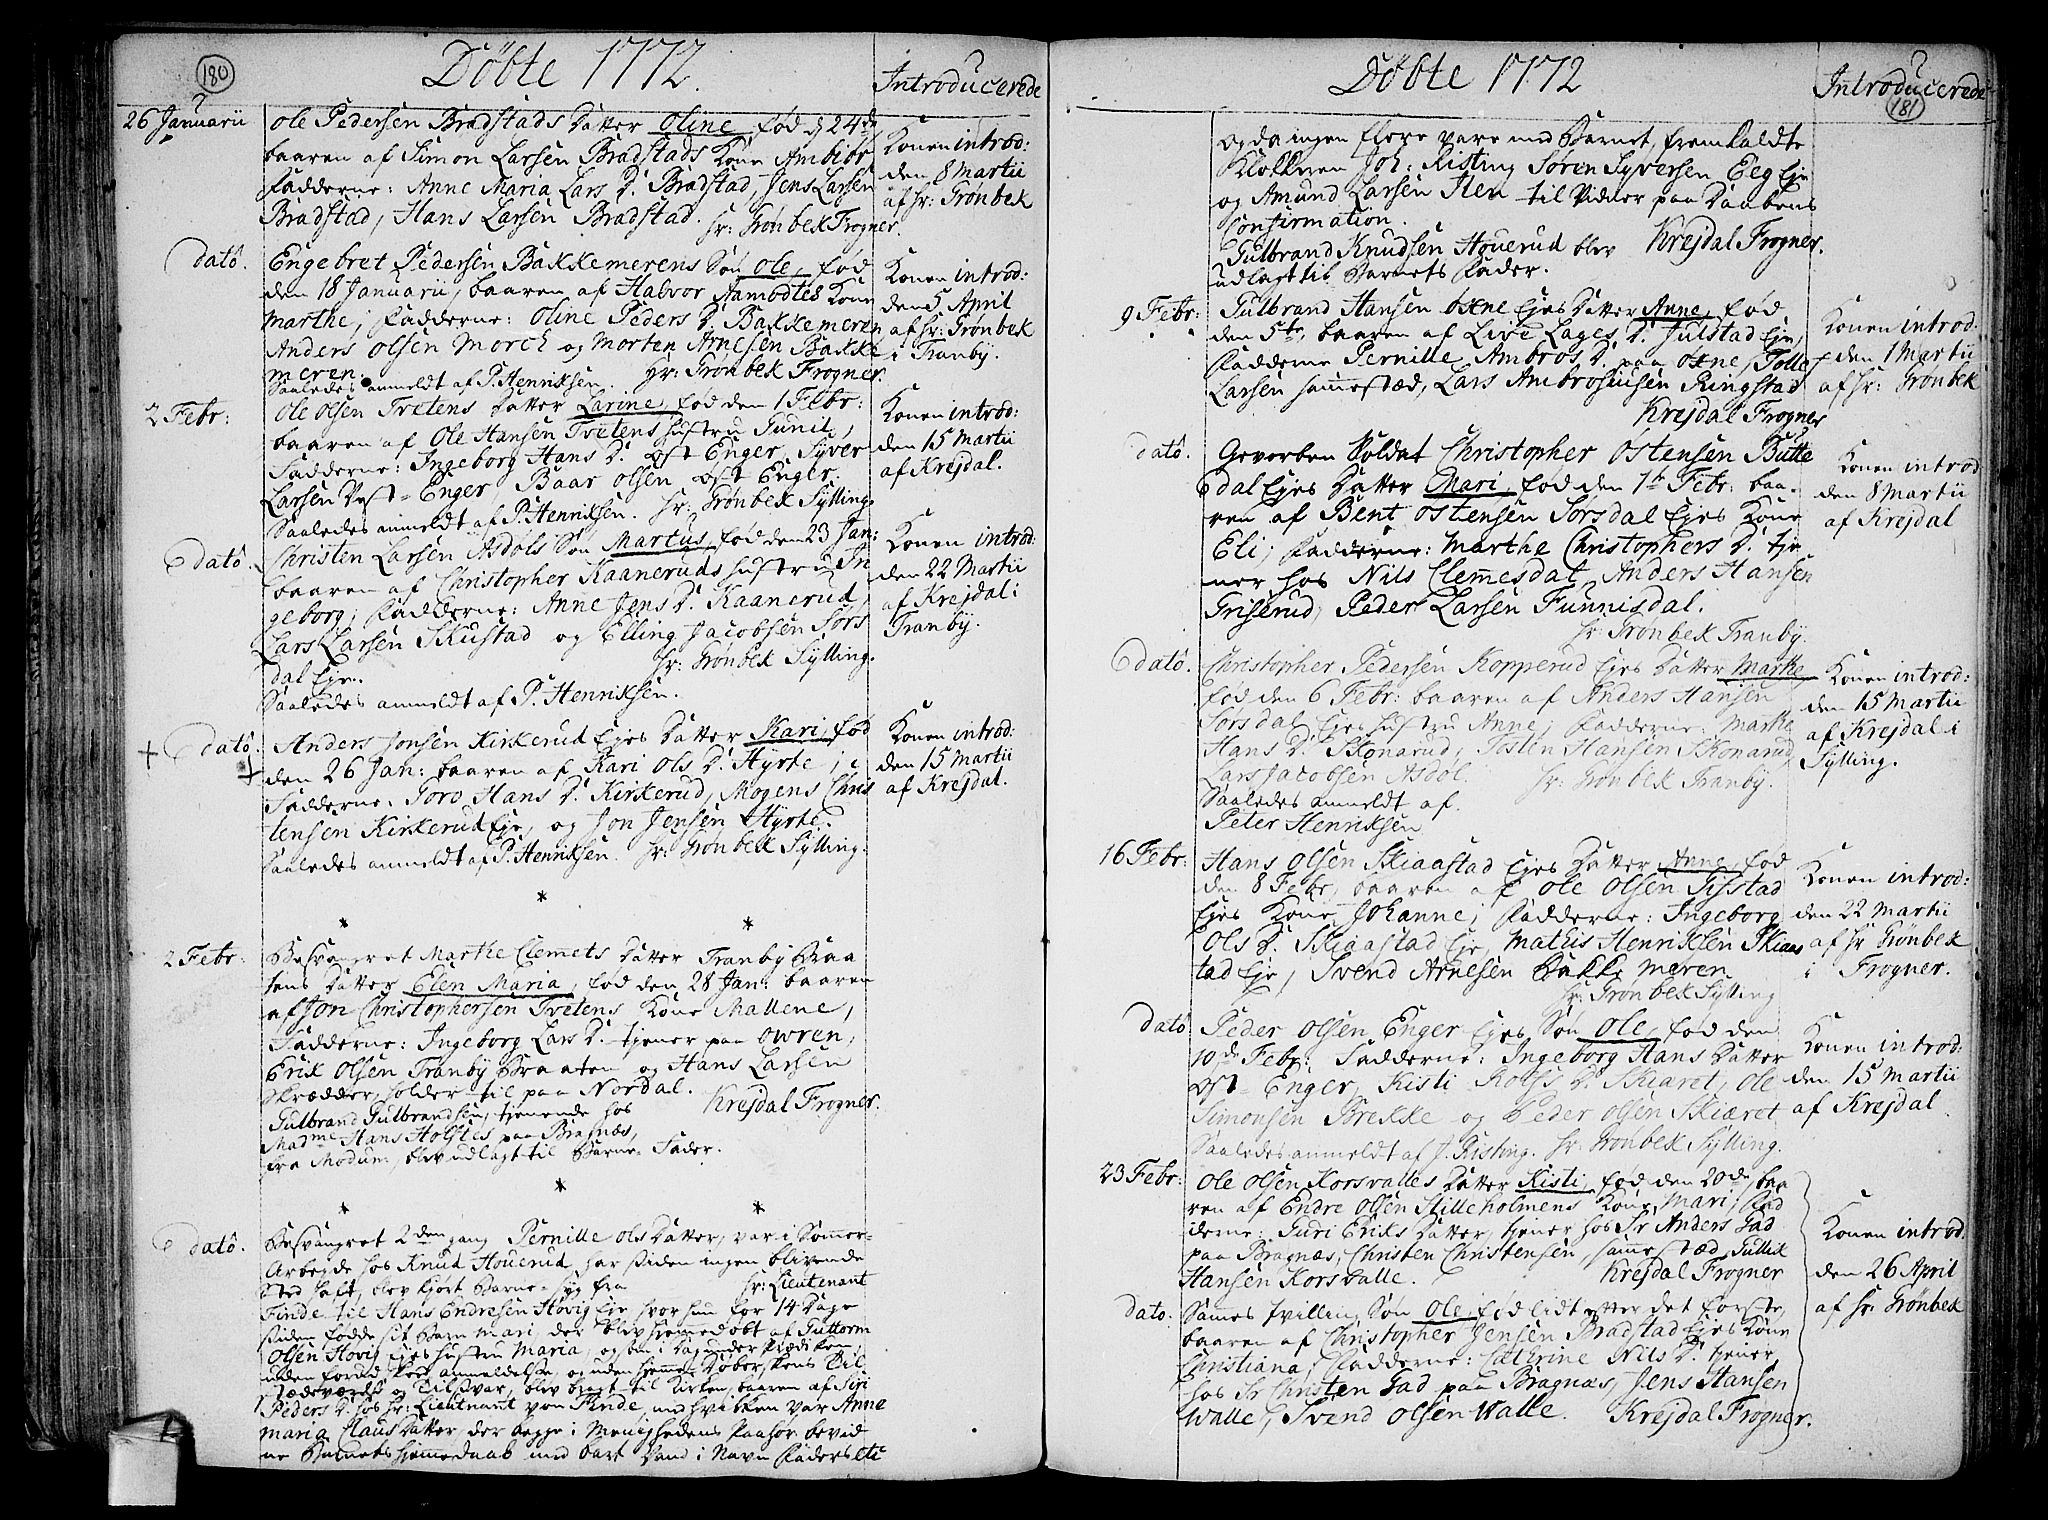 180
Döbte 1772.
Introducerede
26 Januarii
Ole Pedersen Bradstads Datter Oline, fød d 24de
baaren af Simon Larsen Bradstads Kone Ambiør
Fadderne: Anne Maria Lars D. Bradstad, Jens Larsen
Bradstad, Hans Larsen Bradstad. Hr: Grønbek Frogner.
Konen introd:
den 8 Martii
af Hr: Grønbek
dato.
Engebret Pedersen Bakkemerens Søn Ole, fød
den 18 Januarii, baaren af Halvor Aamodtes Kone
Marthe; Fadderne: Oline Peders D. Bakkemeren
Anders Olsen Morch og Morten Arnesen Bakke
meren.
Saaledes anmeldt af P. Henriksen. Hr: Grønbek Frogner.
Konen introd:
den 5 April
af Hr: Grønbek
i Tranby.
2 Febr:
Ole Olsen Tvetens Datter Larine, fød den 1 Febr:
baaren af Ole Hansen Tvetens Hustru Gunil,
Fadderne: Ingeborg Hans D. Øst Enger, Syver
Larsen Vest-Enger, Baar Olsen Øst Enger.
Saaledes anmeldt af P. Henriksen. Hr: Grønbek Sylling.
Konen introd:
den 15 Martii
af Krejdal.
dato.
Christen Larsen Asdøls Søn Martus, fød den 23 Jan:
baaren af Christopher Kaaneruds Hustru In
geborg; Fadderne: Anne Jens D. Kaanerud,
Lars Larsen Skustad og Elling Jacobsen Sørs
dal Eje. Hr: Grønbek Sylling.
Saaledes anmeldt af P. Henriksen.
Konen introd:
den 22 Martii
af Krejdal i
Tranby.
dato.
Anders Jonsen Kirkerud Ejes Datter Kari, fød
den 26 Jan: baaren af Kari Ols D. Hyrte;
Fadderne: Goro Hans D. Kirkerud, Mogens Chris
tensen Kirkerud Eje, og Jon Jensen Hyrte.
Saaledes anmeldt af P. Henriksen. Hr: Grønbek Sylling.
Konen introd:
den 15 Martii
af Krejdal.
2 Febr:
Besvangret Marthe Clemets Datter Tranby Braa
tens Datter Elen Maria, fød den 28 Jan: baaren
af Jon Christophersen Tvetens Kone Mallene,
Fadderne: Ingeborg Lars D. tjener paa Owren,
Erik Olsen Tranby Braaten og Hans Larsen
Skrædder, holder til paa Nordal.
Gulbrand Gulbrandsen, tjenende hos Krejdal Frogner.
Madme Hans Holstes paa Bragnæs,
fra Modum, blev udlagt til Barne-Fader.
dato.
Besvangret 2den gang Pernille Ols Datter, var i Sommer-
Arbejde hos Knud Houerud, har siden ingen blivende
Sted haft, blev kjørt Barne-syg fra Hr: Lieutenant
Finde til Hans Endresen Hovig Eje hvor hun for 14 Dage
siden fødde sit Barn Mari, der blev hjemmedøbt af Guttorm
Olsen Hovig Ejes Hustru Maria, og
uden foregaaende anmeldelse, og uden hjemme-Døberskens
Tilstædeværelse og Tilsvar, blev bragt til Kirken, baaren af Siri
Peders D. hos Hr: Lieutnant von Finde, med hvilken var Anne
Maria Claus Datter, der begge i Menighedens Paahør bevid
ne Barnets hjemmedaab med bart Vand i Navn Faders etc
181
Döbte 1772
Introducerede
og da ingen flere vare med Barnet, fremkaldte
Klokkeren Joh: Risting Søren Syversen Eeg Eje
og Amund Larsen Iten til Vidner paa Daabens
Confirmation.
Gulbrand Knudsen Houerud blev Krejdal Frogner.
udlagt til Barnets Fader.
9 Febr:
Gulbrand Hansen Oxne Ejes Datter Anne, fød
den 5te, baaren af Live Lages D. Julstad Eje,
Fadderne Pernille Ambros D. paa Oxne, Tolle
Larsen sammested, Lars Ambrosiusen Ringstad
Krejdal Frogner
Konen introd.
den 1 Martii
af Hr: Grønbek
dato.
Gevorben Soldat Christopher Ostensen Butte
dal Ejes Datter Mari, fød den 1te Febr: baa-
ren af Bent Ostensen Sørsdal Ejes Kone
Eli; Fadderne: Marthe Christophers D. tje
ner hos Nils Clemesdal, Anders Hansen
Griserud, Peder Larsen Funnisdal.
Hr: Grønbek Tranby.
Konen introd
den 8 Martii
af Krejdal
dato.
Christopher Pedersen Kopperud Ejes Datter Marthe,
fød den 6 Febr: baaren af Anders Hansen
Sørsdal Ejes Hustru Anne; Fadderne: Marthe
Hans D. Skonarud, Tosten Hansen Skonarud,
Lars Jacobsen Asdøl. Hr: Grønbek Tranby.
Saaledes anmeldt af
Peter Henriksen
Konen introd:
den 15 Martii
af Krejdal i
Sylling.
16 Febr:
Hans Olsen Skiaastad Ejes Datter Anne, fød
den 8 Febr, baaren af Ole Olsen Gisstad
Ejes Kone Johanne; Fadderne: Ingeborg
Ols D. Skiaastad Eje, Mathis Henriksen Skiaas
tad Eje, Svend Arnesen Bakke meren
Hr: Grønbek Sylling
Konen introd:
den 22 Martii
af Hr Grønbek
i Frogner.
dato
Peder Olsen Enger Ejes Søn Ole, fød den
10de Febr: Fadderne: Ingeborg Hans Datter
Øst Enger, Kisti Rolfs D. Skiaret, Ole
Simonsen Brekke og Peder Olsen Skiæret
Saaledes anmeldt af J. Risting. Hr: Grønbek Sylling.
Konen introd:
den 15 Martii
af Krejdal.
23 Febr:
Ole Olsen Korsvalles Datter Kisti, fød den 20de, baa
ren af Endre Olsen Stilleholmens Kone Mari, Fad
derne: Guri Eriks Datter, tjener hos Sr Anders Gad
paa Bragnæs, Christen Christensen, sammested, Gullik
Hansen Korsvalle. Krejdal Frogner
Konen introd.
den 26 April
af Hr: Grønbek
dato.
Sammes tvilling Søn Ole fød lidt efter det første,
baaren af Christopher Jensen Bradstad Ejes Kone
Christiana; Fadderne: Cathrine Nils D. tjener
hos Sr Christen Gad paa Bragnæs, Jens Hansen
Walle, Svend Olsen Walle. Krejdal Frogner.